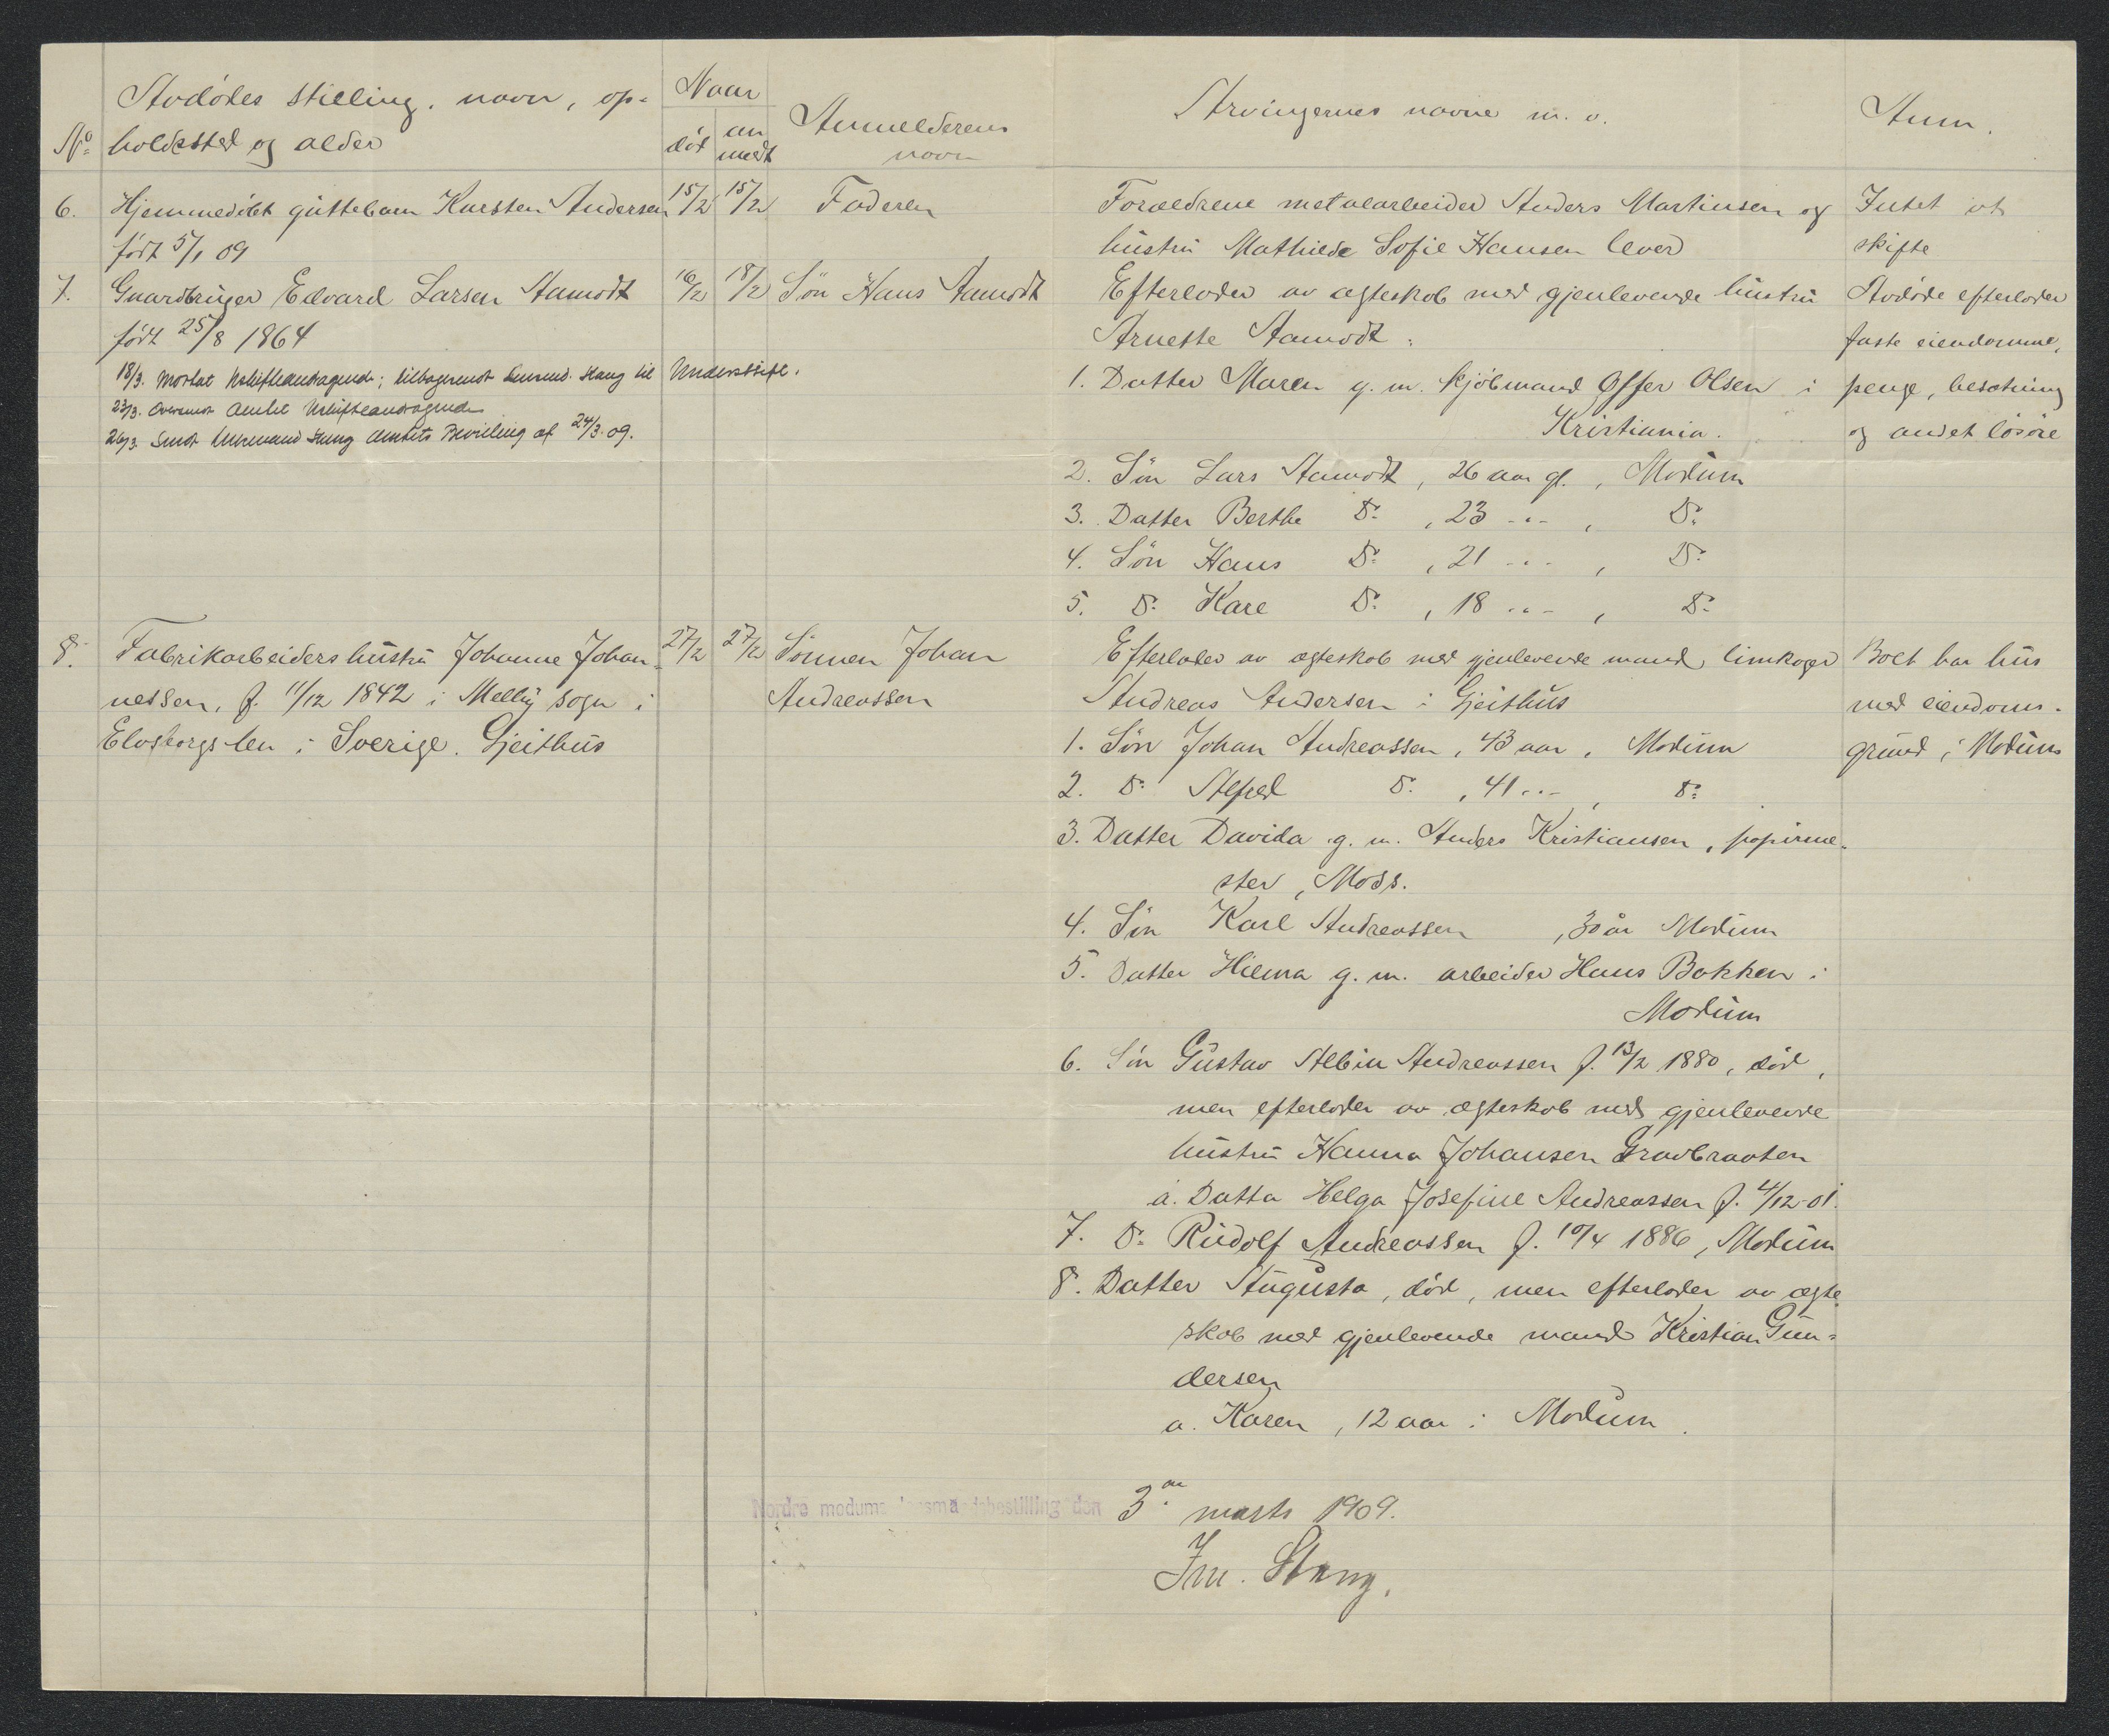 Avdødes stilling, navn, op-
No holdssted og alder
Naar
død
an
meldt
Anmelderens
navn
Arvingernes navne m. v.
Anm.
6. Hjemmedøbt guttebarn Karsten Andersen 15/2 15/2 Faderen
født 5/1 09
Forældrene metalarbeider Anders Martinsen og
hustru Mathilde Sofie Hansen lever
Intet at
skifte
7. Gaardbruger Edvard Larsen Aamodt 16/2 18/2 Søn Hans Aamodt
født 25/8 1864
18/3. Mottat Uskifteandragende; tilbagesendt Lensmd. Stang til Underskrift.
23/3. Oversendt Amtet Uskifteandragende
26/3. Sendt Lensmand Stang Amtets Bevilling af 24/3 09.
Efterlader av ægteskab med gjenlevende hustru
Arnette Aamodt:
1. Datter Maren g. m. kjøbmand Offer Olsen i
Kristiania.
2. Søn Lars Aamodt, 26 aar gl., Modum
3. Datter Berthe Do , 23 -"- , Do
4. Søn Hans Do , 21 -"- , Do
5. Do Kare Do , 18 -"- , Do
Avdøde efterlader
faste eiendomme,
penge, besætning
og andet løsøre
8. Fabrikarbeiders hustru Johanne Johan- 27/2 27/2 Sønnen Johan
nessen, f. 11/12 1842 i Mellby sogn i Andreassen
Elvsborgs len i Sverige. Gjeithus
Efterlader av ægteskab med gjenlevende mand limkoger
Andreas Andersen i Gjeithus
1. Søn Johan Andreassen, 43 aar, Modum
2. Do Alfred Do , 41 -"- , Do
3. Datter Davida g. m. Anders Kristiansen, papirme-
ster, Moss.
4. Søn Karl Andreassen , 30 år Modum
5. Datter Hilma g. m. arbeider Hans Bakken i
Modum
6. Søn Gustav Albin Andreassen f. 13/2 1880, død,
men efterlader av ægteskab med gjenlevende
hustru Hanna Johansen Gravbraaten
a. Datter Helga Josefine Andreassen f. 4/12-01.
7. Do Rudolf Andreassen f. 10/4 1886, Modum
8. Datter Augusta, død, men efterlader av ægte
skab med gjenlevende mand Kristian Gun-
dersen
a. Karen, 12 aar i Modum.
Boet har hus
med eiendoms-
grund i Modum
Nordre modums lensmandsbestilling den 3. marts 1909.
Stang.